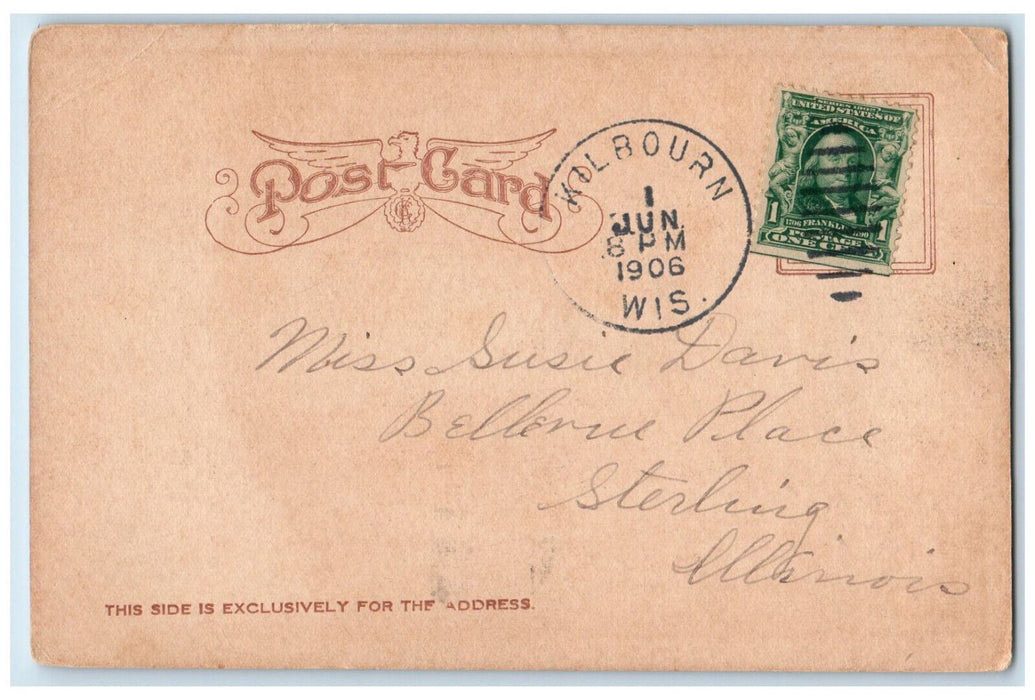 Post Card
KILBOURN
1
JUN
8 PM
1906
WIS.
SERIES 1902
UNITED STATES OF
AMERICA
1 1
1706 FRANKLIN 1790
POSTAGE
ONE CENT
Miss Susie Davis
Bellevue Place
Sterling
Illinois
THIS SIDE IS EXCLUSIVELY FOR THE ADDRESS.